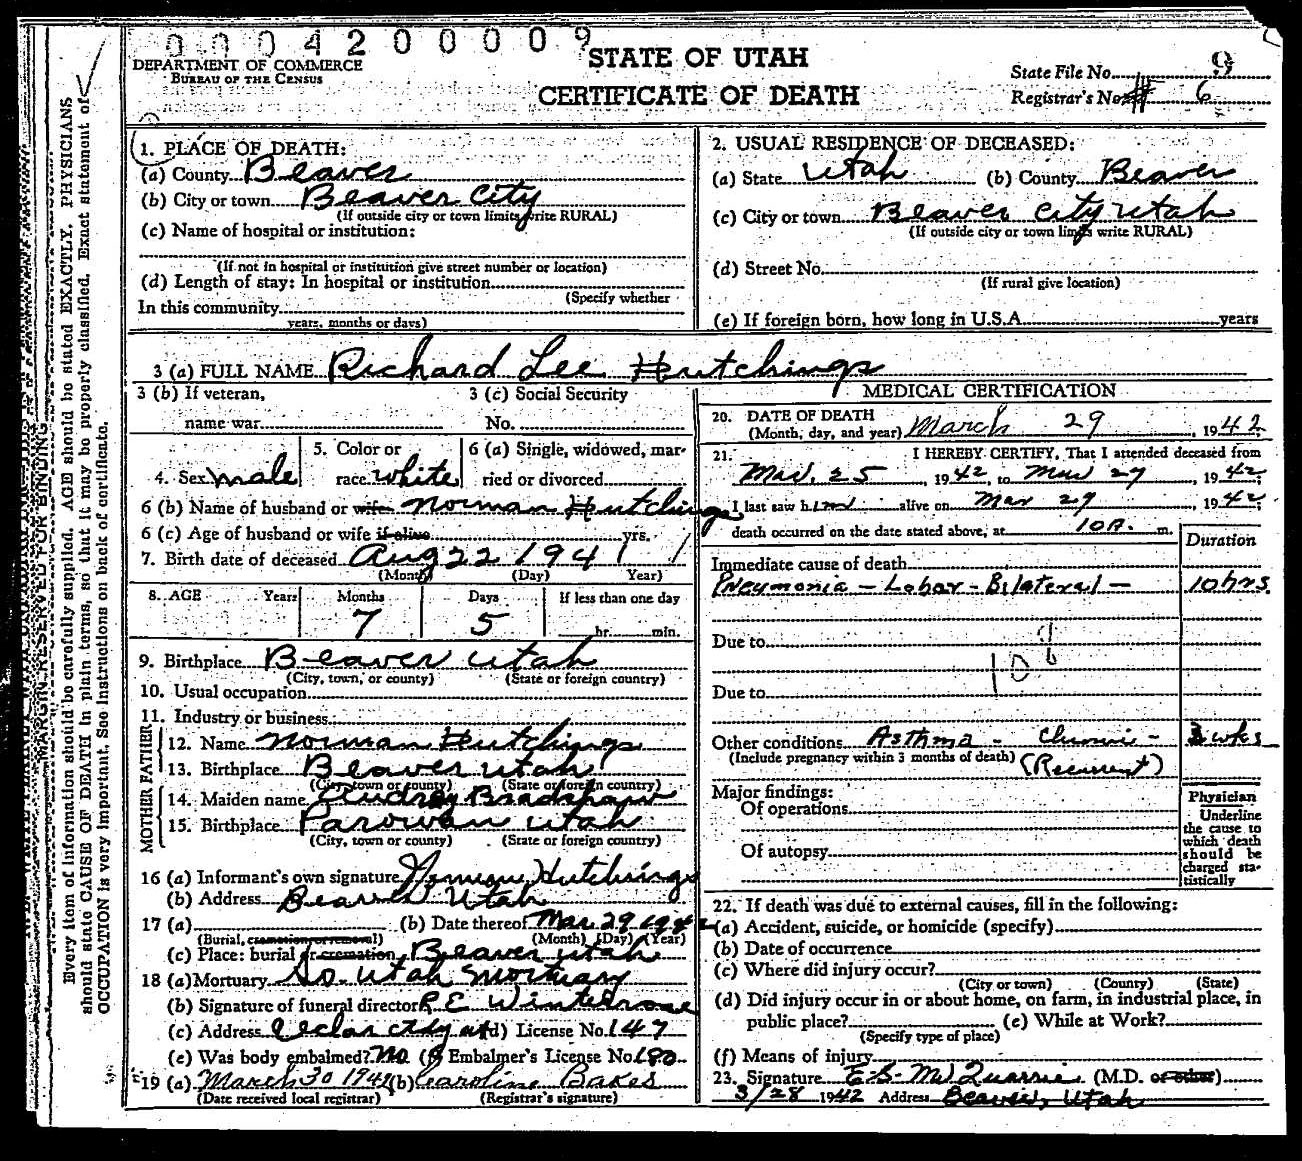 0 0 0 4 2 0 0 0 0 9
STATE OF UTAH
CERTIFICATE OF DEATH
DEPARTMENT OF COMMERCE
BUREAU OF THE CENSUS
State File No. 9
Registrar's No. # 6
Every item of information should be carefully supplied. AGE should be stated EXACTLY, PHYSICIANS
should state CAUSE OF DEATH in plain terms, so that it may be properly classified. Exact statement of
OCCUPATION is very important. See instructions on back of certificate.
MARGIN RESERVED FOR BINDING
1. PLACE OF DEATH:
(a) County Beaver
(b) City or town Beaver City
(If outside city or town limits write RURAL)
(c) Name of hospital or institution:
(If not in hospital or institution give street number or location)
(d) Length of stay: In hospital or institution
(Specify whether
In this community
years, months or days)
2. USUAL RESIDENCE OF DECEASED:
(a) State Utah (b) County Beaver
(c) City or town Beaver City Utah
(If outside city or town limits write RURAL)
(d) Street No.
(If rural give location)
(e) If foreign born, how long in U.S.A. years
3 (a) FULL NAME Richard Lee Hutchings
3 (b) If veteran,
name war
3 (c) Social Security
No.
4. Sex male
5. Color or
race white
6 (a) Single, widowed, mar-
ried or divorced
6 (b) Name of husband or wife Norman Hutchings
6 (c) Age of husband or wife if alive yrs.
7. Birth date of deceased Aug 22 1941
(Month) (Day) Year)
8. AGE Years Months Days If less than one day
7 5 hr. min.
9. Birthplace Beaver Utah
(City, town, or county) (State or foreign country)
10. Usual occupation
11. Industry or business
FATHER
12. Name Norman Hutchings
13. Birthplace Beaver Utah
(City, town or county) (State or foreign country)
MOTHER
14. Maiden name Audrey Bradshaw
15. Birthplace Parowan Utah
(City, town or county) (State or foreign country)
16 (a) Informant's own signature Norman Hutchings
(b) Address Beaver Utah
17 (a) (b) Date thereof Mar 29 1942
(Burial, cremation or removal) (Month) (Day) (Year)
(c) Place: burial or cremation Beaver Utah
18 (a) Mortuary So. Utah Mortuary
(b) Signature of funeral director R E Winterrose
(c) Address Cedar City Ut (d) License No. 147
(e) Was body embalmed? No (f) Embalmer's License No. 180
19 (a) March 30 1942 (b) Caroline Bakes
(Date received local registrar) (Registrar's signature)
MEDICAL CERTIFICATION
20. DATE OF DEATH
(Month, day, and year) March 29, 1942
21. I HEREBY CERTIFY, That I attended deceased from
Mar. 25 1942, to Mar 29, 1942
I last saw him alive on Mar 29, 1942
death occurred on the date stated above, at 10 A. m.
Duration
Immediate cause of death
Pneumonia - Lobar - Bilateral - 10 hrs
Due to
Due to
Other conditions Asthma - Chronic - 3 wks
(Include pregnancy within 3 months of death) (Recurrent)
Major findings:
Of operations
Of autopsy
Physician
Underline
the cause to
which death
should be
charged sta-
tistically
22. If death was due to external causes, fill in the following:
(a) Accident, suicide, or homicide (specify)
(b) Date of occurrence
(c) Where did injury occur?
(City or town) (County) (State)
(d) Did injury occur in or about home, on farm, in industrial place, in
public place? (e) While at Work?
(Specify type of place)
(f) Means of injury
23. Signature E.S. McQuarrie (M.D. or other)
3/28 1942 Address Beaver, Utah